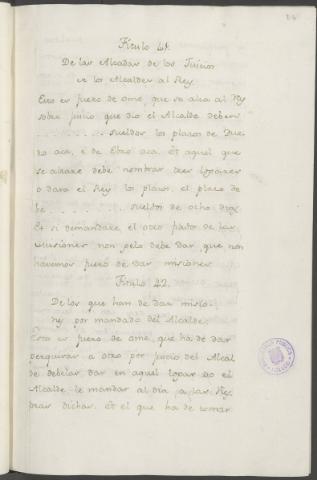 Titulo 21.
De las Alzadas de los Juicios
de los Alcaldes al Rey
Esto es fuero de ome, que se alza al Rey
sobre juicio, que dio el Alcalde deben
. . . . . . . . . . sueldos los plazos de Due-
ro acá, é de Ebro acá. Et aquel que
se alzare debe nombrar
ó dará el Rey los plazos, el plazo de
be . . . . . . . . . . sueldos de ocho dias.
Et si demandare el otro palto de las
misiones non gelo debe dar, que non
havemos fuero de dar misiones
Titulo 22.
De los que han de dar
por mandado del Alcalde.
Esto es fuero de ome, que ha de dar
á otro por juicio del Alcal
de debelas dar en aquel logar do el
Alcalde le mandar al dia, á las
dichas. Et el que ha de tomar